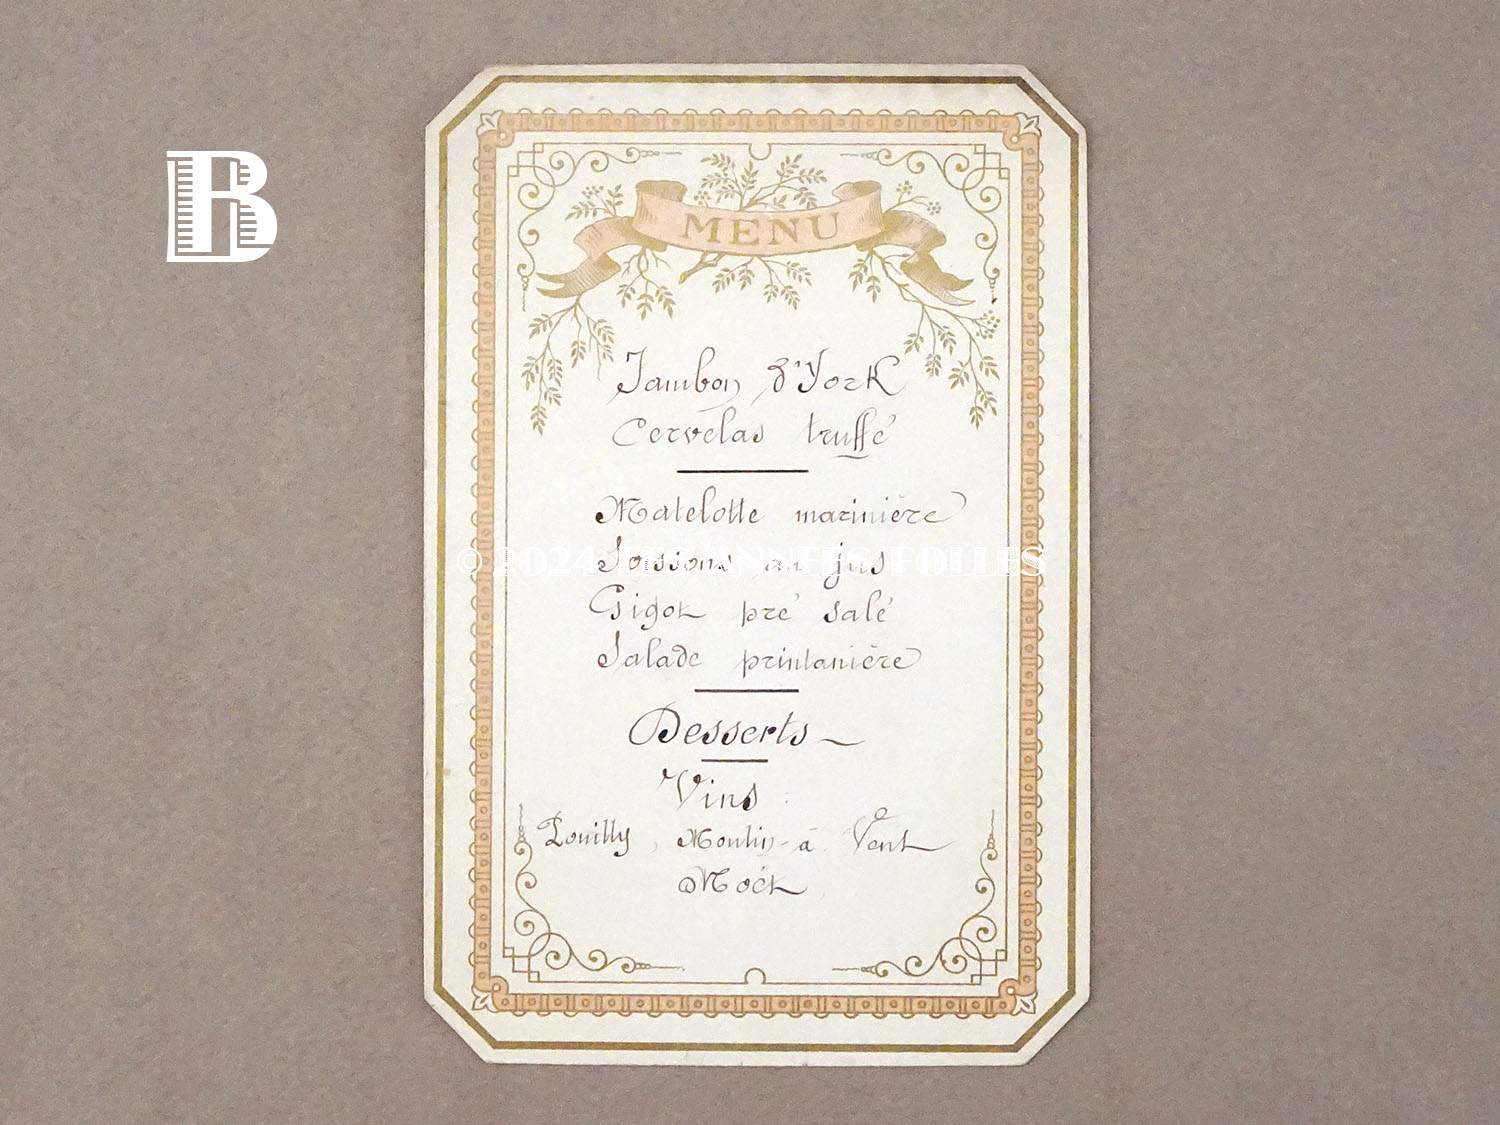 B
MENU
Jambon d'York
Cervelas truffé
Matelotte marinière
© 2024 LES ANNEES FOLLES
Soissons au jus
Gigot pré salé
Salade printanière
Desserts
Vins
Pouilly, Moulin-à Vent
Moët